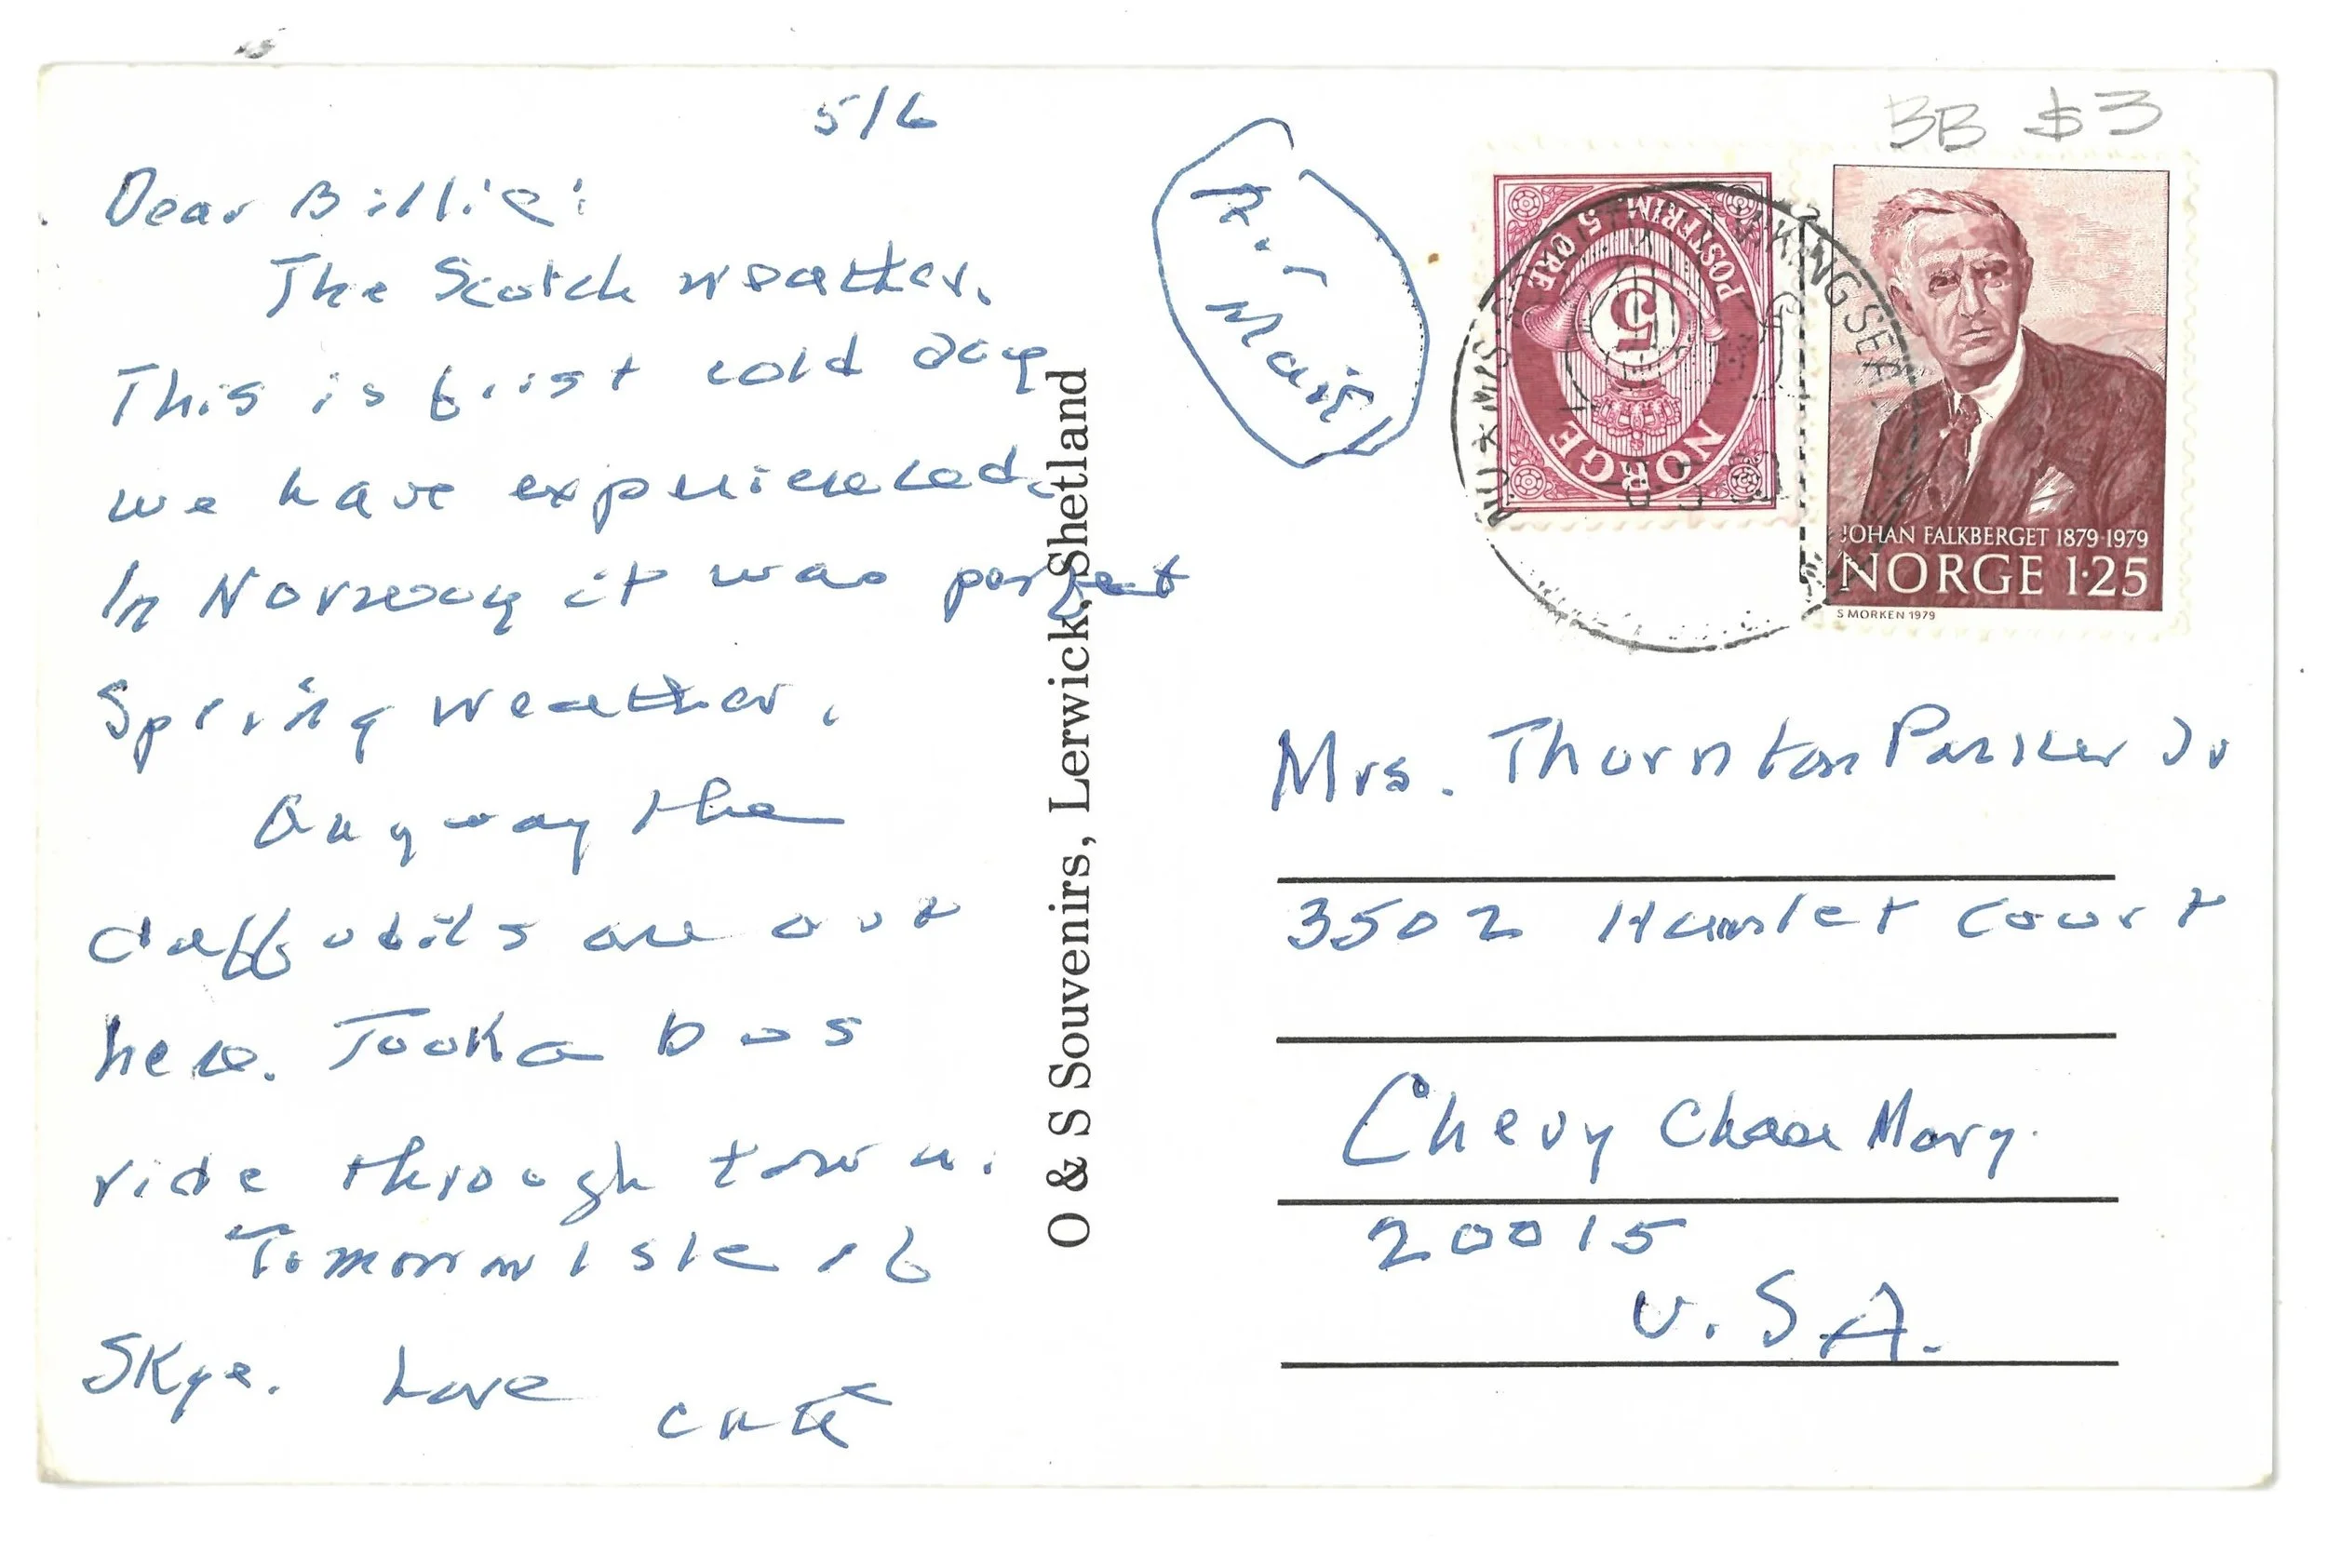 5/6
Dear Billie:
The Scotch weather.
This is first cold day
we have experienced.
In Norway it was perfect
Spring weather.
Anyway the
daffodils are out
here. Took a bus
ride through town.
Tomorrow Isle of
Skye. Love
O & S Souvenirs, Lerwick, Shetland
Air
Mail
BB $3
POSTFRIM. 5 ØRE
5
NORGE
VIKING SEA
JOHAN FALKBERGET 1879-1979
NORGE 1·25
S MORKEN 1979
Mrs. Thornton Parker Jr
3502 Hamlet Court
Chevy Chase Mary.
20015
U.S.A.